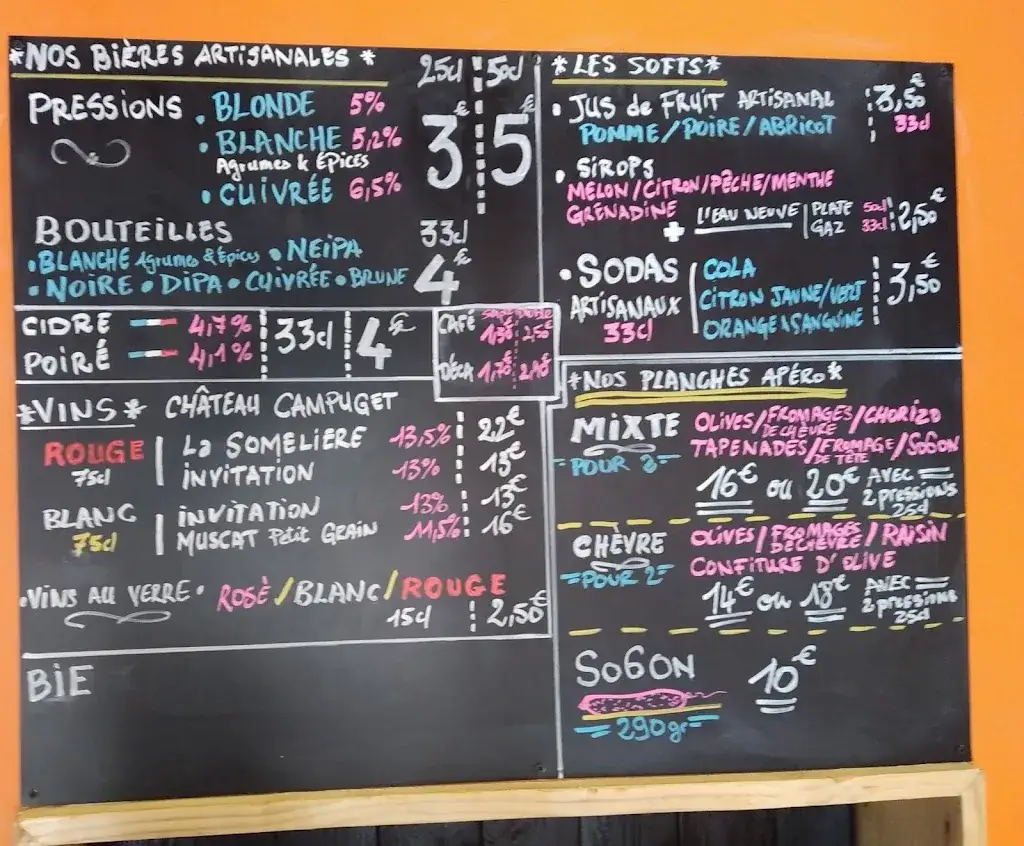 *NOS BIÈRES ARTISANALES * 25cl 50cl
PRESSIONS • BLONDE 5%
• BLANCHE 5,2% 3€ 5€
Agrumes & ÉPICES
• CUIVRÉE 6,5%
BOUTEILLES 33cl
• BLANCHE Agrumes & Épices • NEIPA
• NOIRE • DIPA • CUIVRÉE • BRUNE 4€
CIDRE 4,7% 33cl 4€
POIRÉ 4,1%
CAFÉ 1,30€ 2,50€
DÉCA 1,70€
*VINS* CHÂTEAU CAMPUGET
ROUGE La SOMELIÈRE 13,5% 22€
75cl INVITATION 13% 13€
BLANC INVITATION 13% 13€
75cl MUSCAT Petit GRAIN 11,5% 16€
• VINS AU VERRE • ROSÈ/BLANC/ROUGE
15cl 2,50€
BIE
*LES SOFTS*
• JUS de FRUIT ARTISANAL 3,50€
POMME/POIRE/ABRICOT 33cl
• SIROPS
MELON/CITRON/PÊCHE/MENTHE
GRENADINE
+ L'EAU NEUVE PLATE 50cl 2,50€
GAZ 33cl
• SODAS COLA
ARTISANAUX CITRON JAUNE/VERT 3,50€
33cl ORANGE & SANGUINE
*NOS PLANCHES APÉRO*
MIXTE OLIVES/FROMAGES DE CHÈVRE/CHORIZO
=POUR 2= TAPENADES/FROMAGE DE TÊTE/SO6ON
16€ ou 20€ AVEC
2 pressions
25cl
CHÈVRE OLIVES/FROMAGES DE CHÈVRE/RAISIN
=POUR 2= CONFITURE D'OLIVE
14€ ou 18€ AVEC
2 pressions
25cl
SO6ON 10€
=290gr=